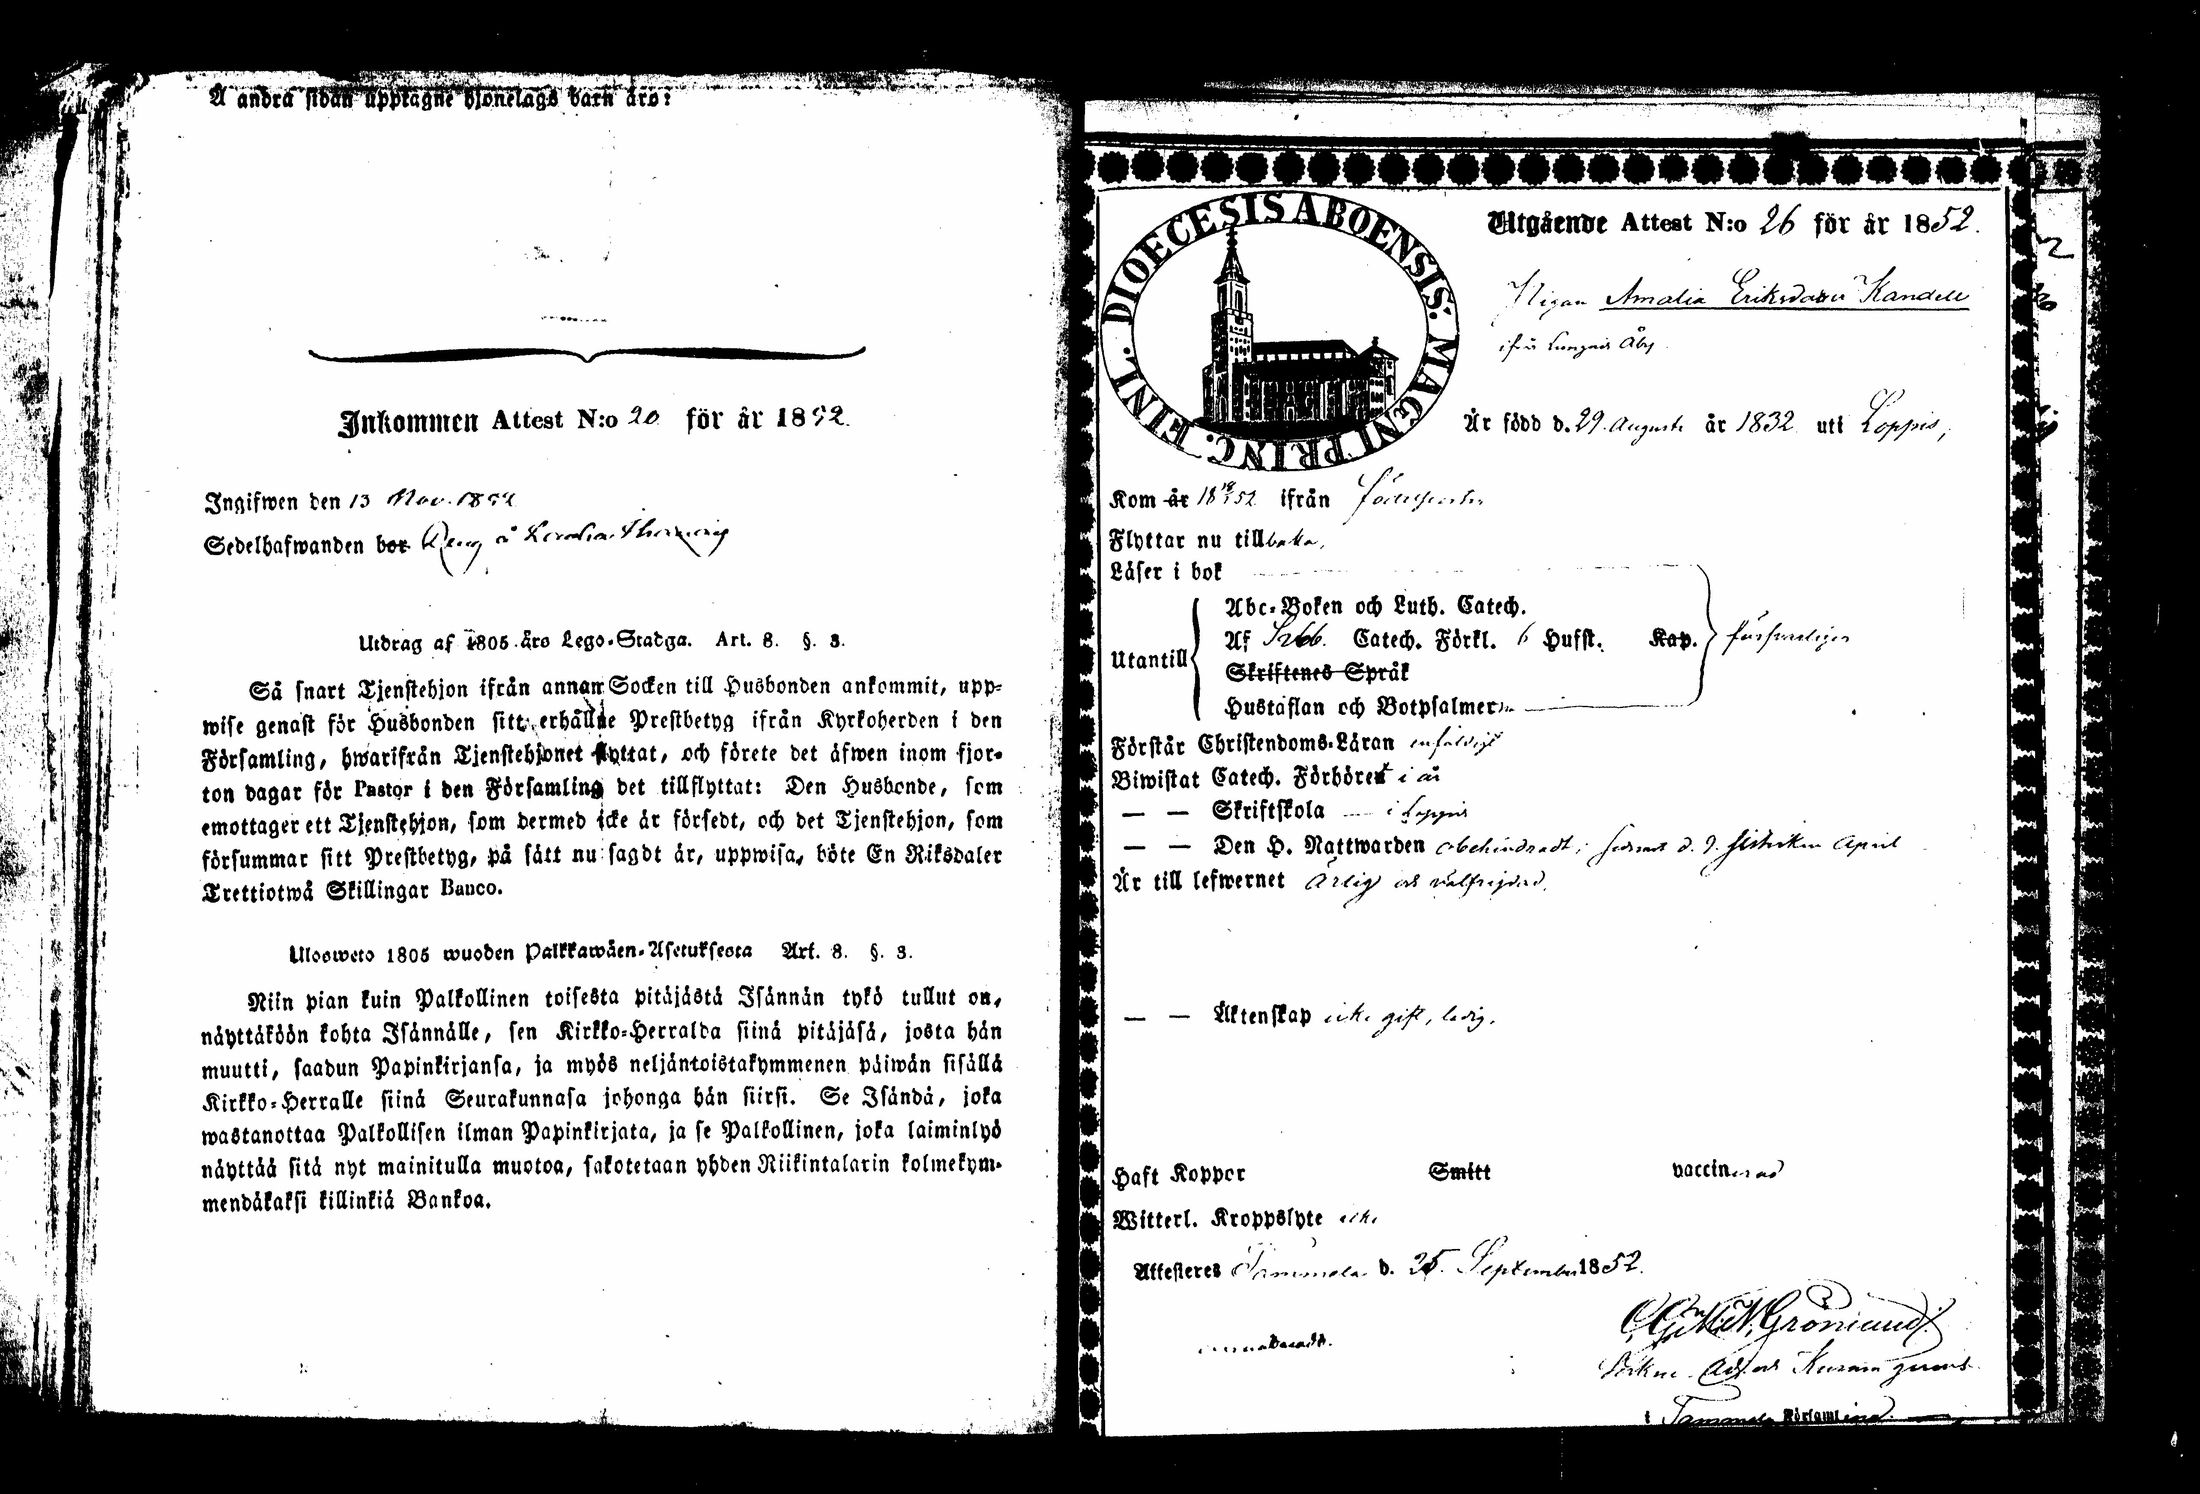 Å andra sidan upptagne hjonelags barn äro:
Inkommen Attest N:o 20 för år 1852.
Ingifwen den 13 Nov. 1852
Sedelhafwanden bor
Utdrag af 1805 års Lego-Stadga. Art. 8. §. 3.
Så snart Tjenstehjon ifrån annan Socken till Husbonden ankommit, upp-
wise genast för Husbonden sitt erhållne Prestbetyg ifrån Kyrkoherden i den
Församling, hwarifrån Tjenstehjonet flyttat, och förete det äfwen inom fjor-
ton dagar för Pastor i den Församling det tillflyttat: Den Husbonde, som
emottager ett Tjenstehjon, som dermed icke är försedt, och det Tjenstehjon, som
försummar sitt Prestbetyg, på sätt nu sagdt är, uppwisa, böte En Riksdaler
Trettiotwå Skillingar Banco.
Ulosweto 1805 wuoden Palkkawäen-Asetuksesta Art. 8. §. 3.
Niin pian kuin Palkollinen toisesta pitäjästä Isännän tykö tullut on,
näyttäköön kohta Isännälle, sen Kirkko-Herralda siinä pitäjäsä, josta hän
muutti, saadun Papinkirjansa, ja myös neljäntoistakymmenen päiwän sisällä
Kirkko-Herralle siinä Seurakunnasa johonga hän siirsi. Se Isändä, joka
wastanottaa Palkollisen ilman Papinkirjata, ja se Palkollinen, joka laiminlyö
näyttää sitä nyt mainitulla muotoa, sakotetaan yhden Riikintalarin kolmekym-
mendäkaksi killinkiä Bankoa.
DIOECESIS ABOENSIS: MAGNI PRINC. FINL.
Utgående Attest N:o 26 för år 1852.
Pigan Amalia Eriksdotter Kandell
ifrån Åby
Är född d. 29 Augusti år 1832 uti Loppis,
Kom år 1852 ifrån födelseorten
Flyttar nu tillbaka,
Läser i bok
Abc-Boken och Luth. Catech.
Af Sveb. Catech. Förkl. 6 Hufst. Kap.
Utantill
Skriftenes Språk
Hustaflan och Botpsalmerna
försvarligen
Förstår Christendoms-Läran enfaldigt
Biwistat Catech. Förhöret i år
— — Skriftskola i Loppis
— — Den H. Nattwarden obehindradt, senast d. 9 sistvikne April
Är till lefwernet ärlig och välfrejdad.
— — Äktenskap icke gift, ledig.
Haft Koppor Smitt vaccinerad
Witterl. Kroppslyte icke
Attesteras Tammela d. 25 September 1852.
Grönlund
i Tammela Församling.